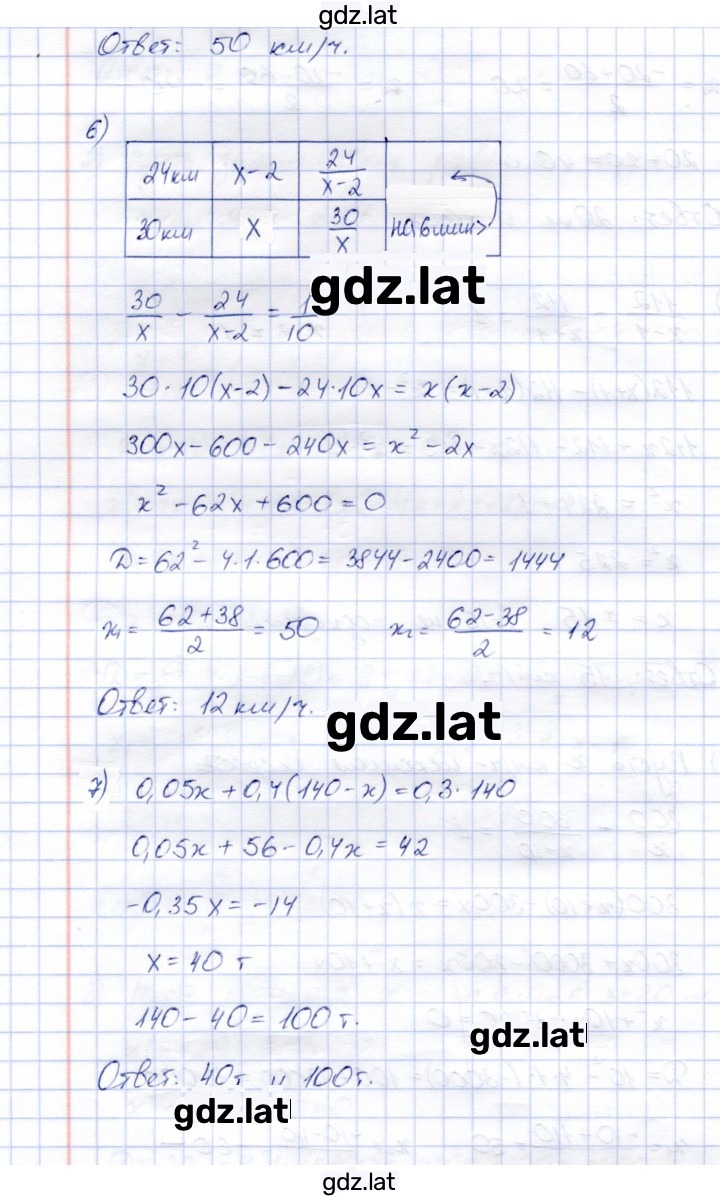 gdz.lat
Ответ: 50 км/ч.
6)
24км | x-2 | 24/(x-2)
30км | x | 30/x | на 6 мин >
gdz.lat
30/x - 24/(x-2) = 1/10
30·10(x-2) - 24·10x = x(x-2)
300x - 600 - 240x = x² - 2x
x² - 62x + 600 = 0
D = 62² - 4·1·600 = 3844 - 2400 = 1444
x₁ = (62+38)/2 = 50 x₂ = (62-38)/2 = 12
Ответ: 12 км/ч.
gdz.lat
7) 0,05x + 0,4(140-x) = 0,3·140
0,05x + 56 - 0,4x = 42
-0,35x = -14
x = 40 т
140 - 40 = 100 т.
gdz.lat
Ответ: 40т и 100т.
gdz.lat
gdz.lat